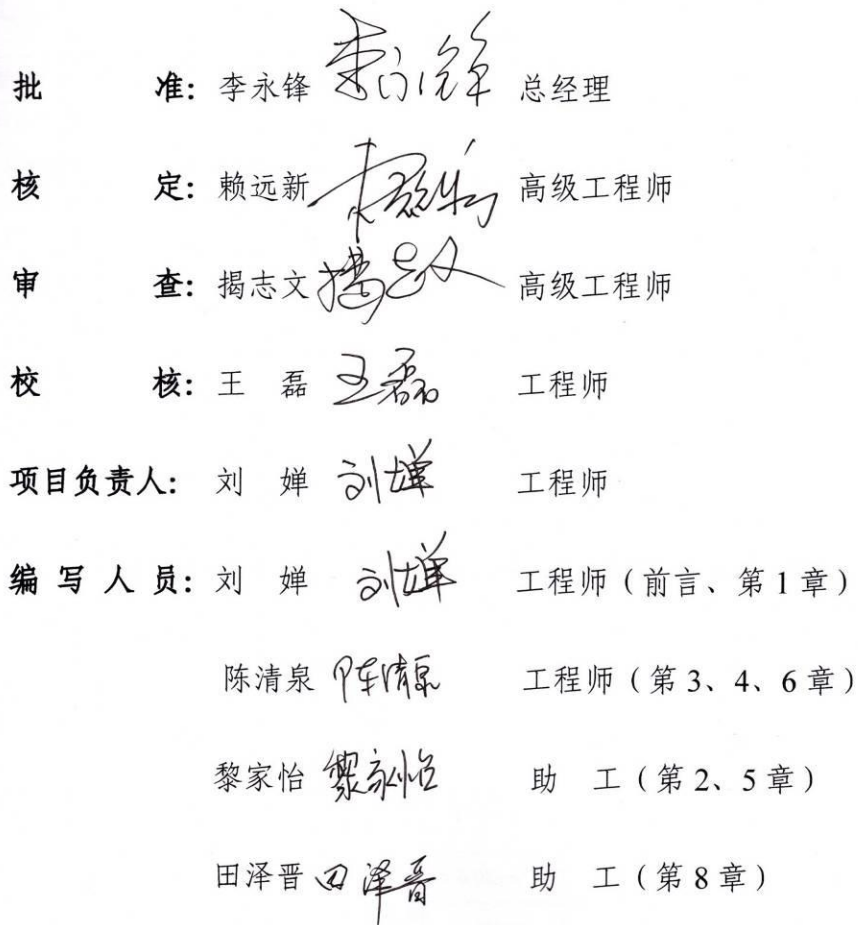 批 准: 李永锋 李永锋 总经理
核 定: 赖远新 赖远新 高级工程师
审 查: 揭志文 揭志文 高级工程师
校 核: 王 磊 王磊 工程师
项目负责人: 刘 婵 刘婵 工程师
编 写 人 员: 刘 婵 刘婵 工程师（前言、第1章）
陈清泉 陈清泉 工程师（第3、4、6章）
黎家怡 黎家怡 助 工（第2、5章）
田泽晋 田泽晋 助 工（第8章）